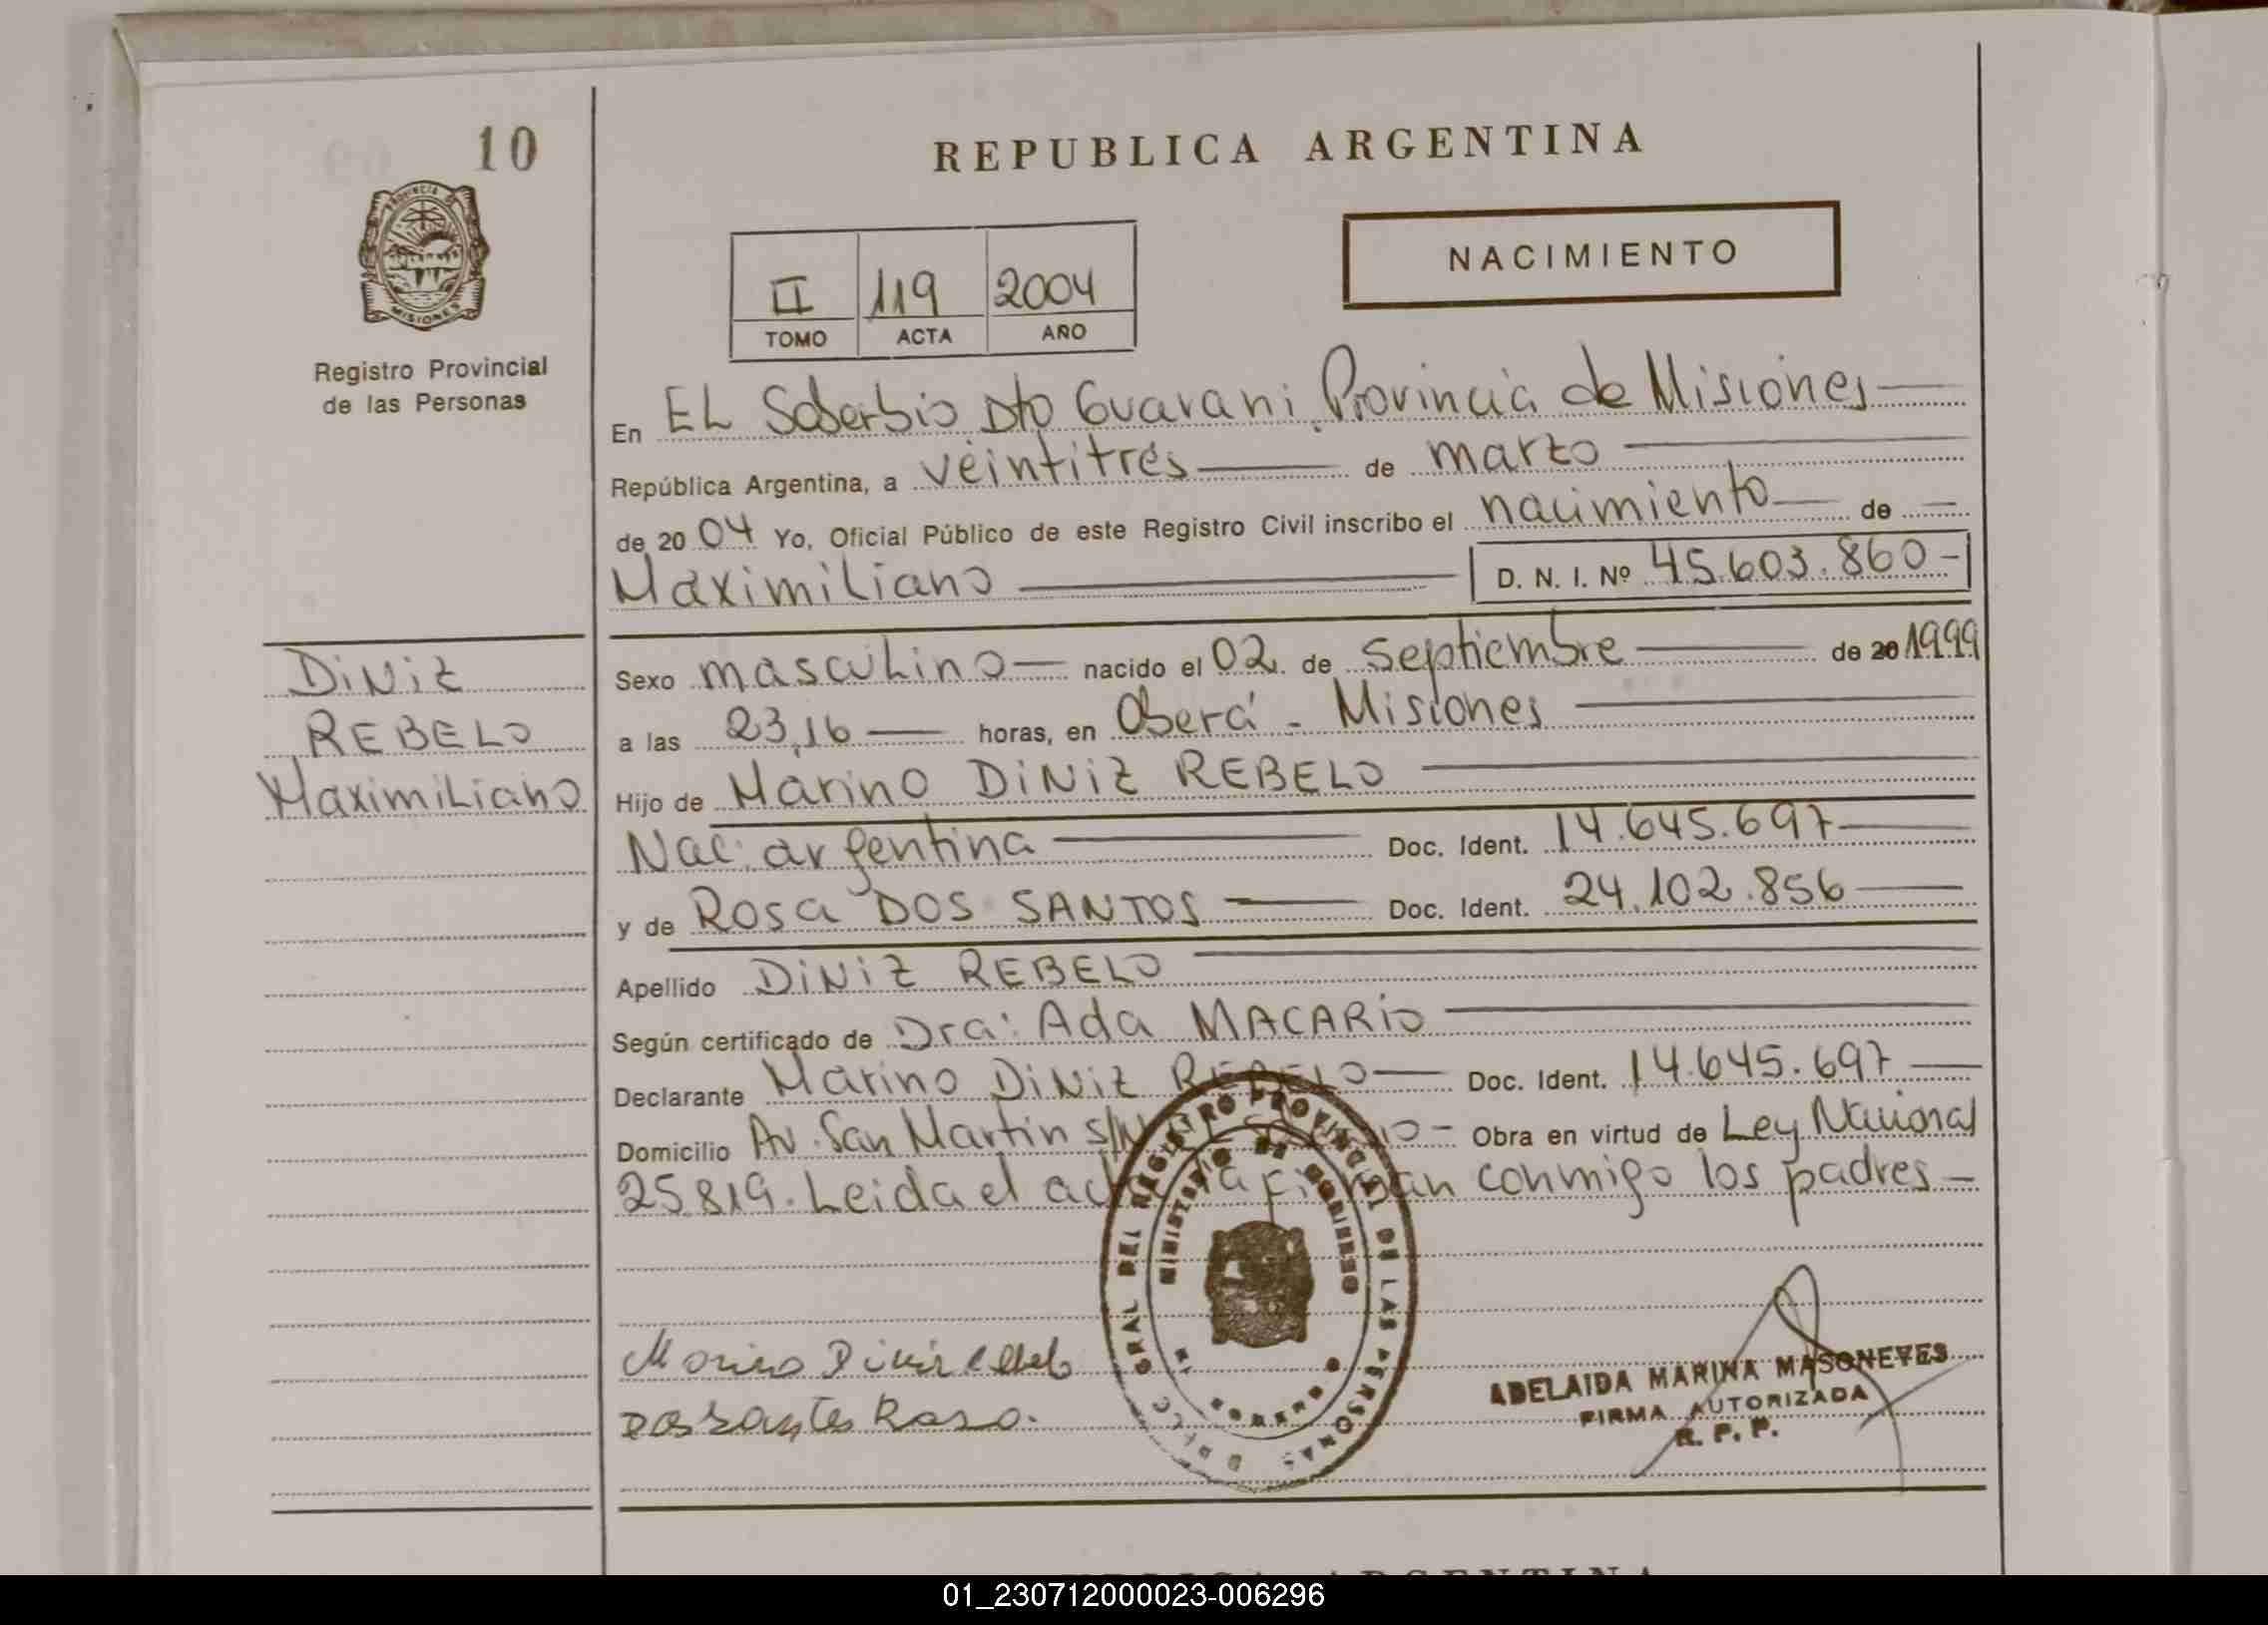 10
PROVINCIA
MISIONES
Registro Provincial
de las Personas
REPUBLICA ARGENTINA
NACIMIENTO
II 119 2004
TOMO ACTA AÑO
En EL Soberbio Dto Guarani Provincia de Misiones
República Argentina, a veintitrés de marzo
de 20 04 Yo, Oficial Público de este Registro Civil inscribo el nacimiento de
Maximiliano D. N. I. Nº 45.603.860-
DINIZ
REBELO
Maximiliano
Sexo masculino nacido el 02 de septiembre de 20 1999
a las 23,16 horas, en Oberá - Misiones
Hijo de Marino DINIZ REBELO
Nac. argentina Doc. Ident. 14.645.697
y de Rosa DOS SANTOS Doc. Ident. 24.102.856
Apellido DINIZ REBELO
Según certificado de Dra: Ada MACARIO
Declarante Marino DINIZ REBELO Doc. Ident. 14.645.697
Domicilio Av. San Martin s/n Obra en virtud de Ley Nacional
25.819. Leida el acta la firman conmigo los padres
GRAL DEL REGISTRO PROVINCIAL DE LAS PERSONAS
MINISTERIO DE GOBIERNO
Dos Santos Rosa.
ADELAIDA MARINA MASONEVES
FIRMA AUTORIZADA
R. P. P.
01_230712000023-006296